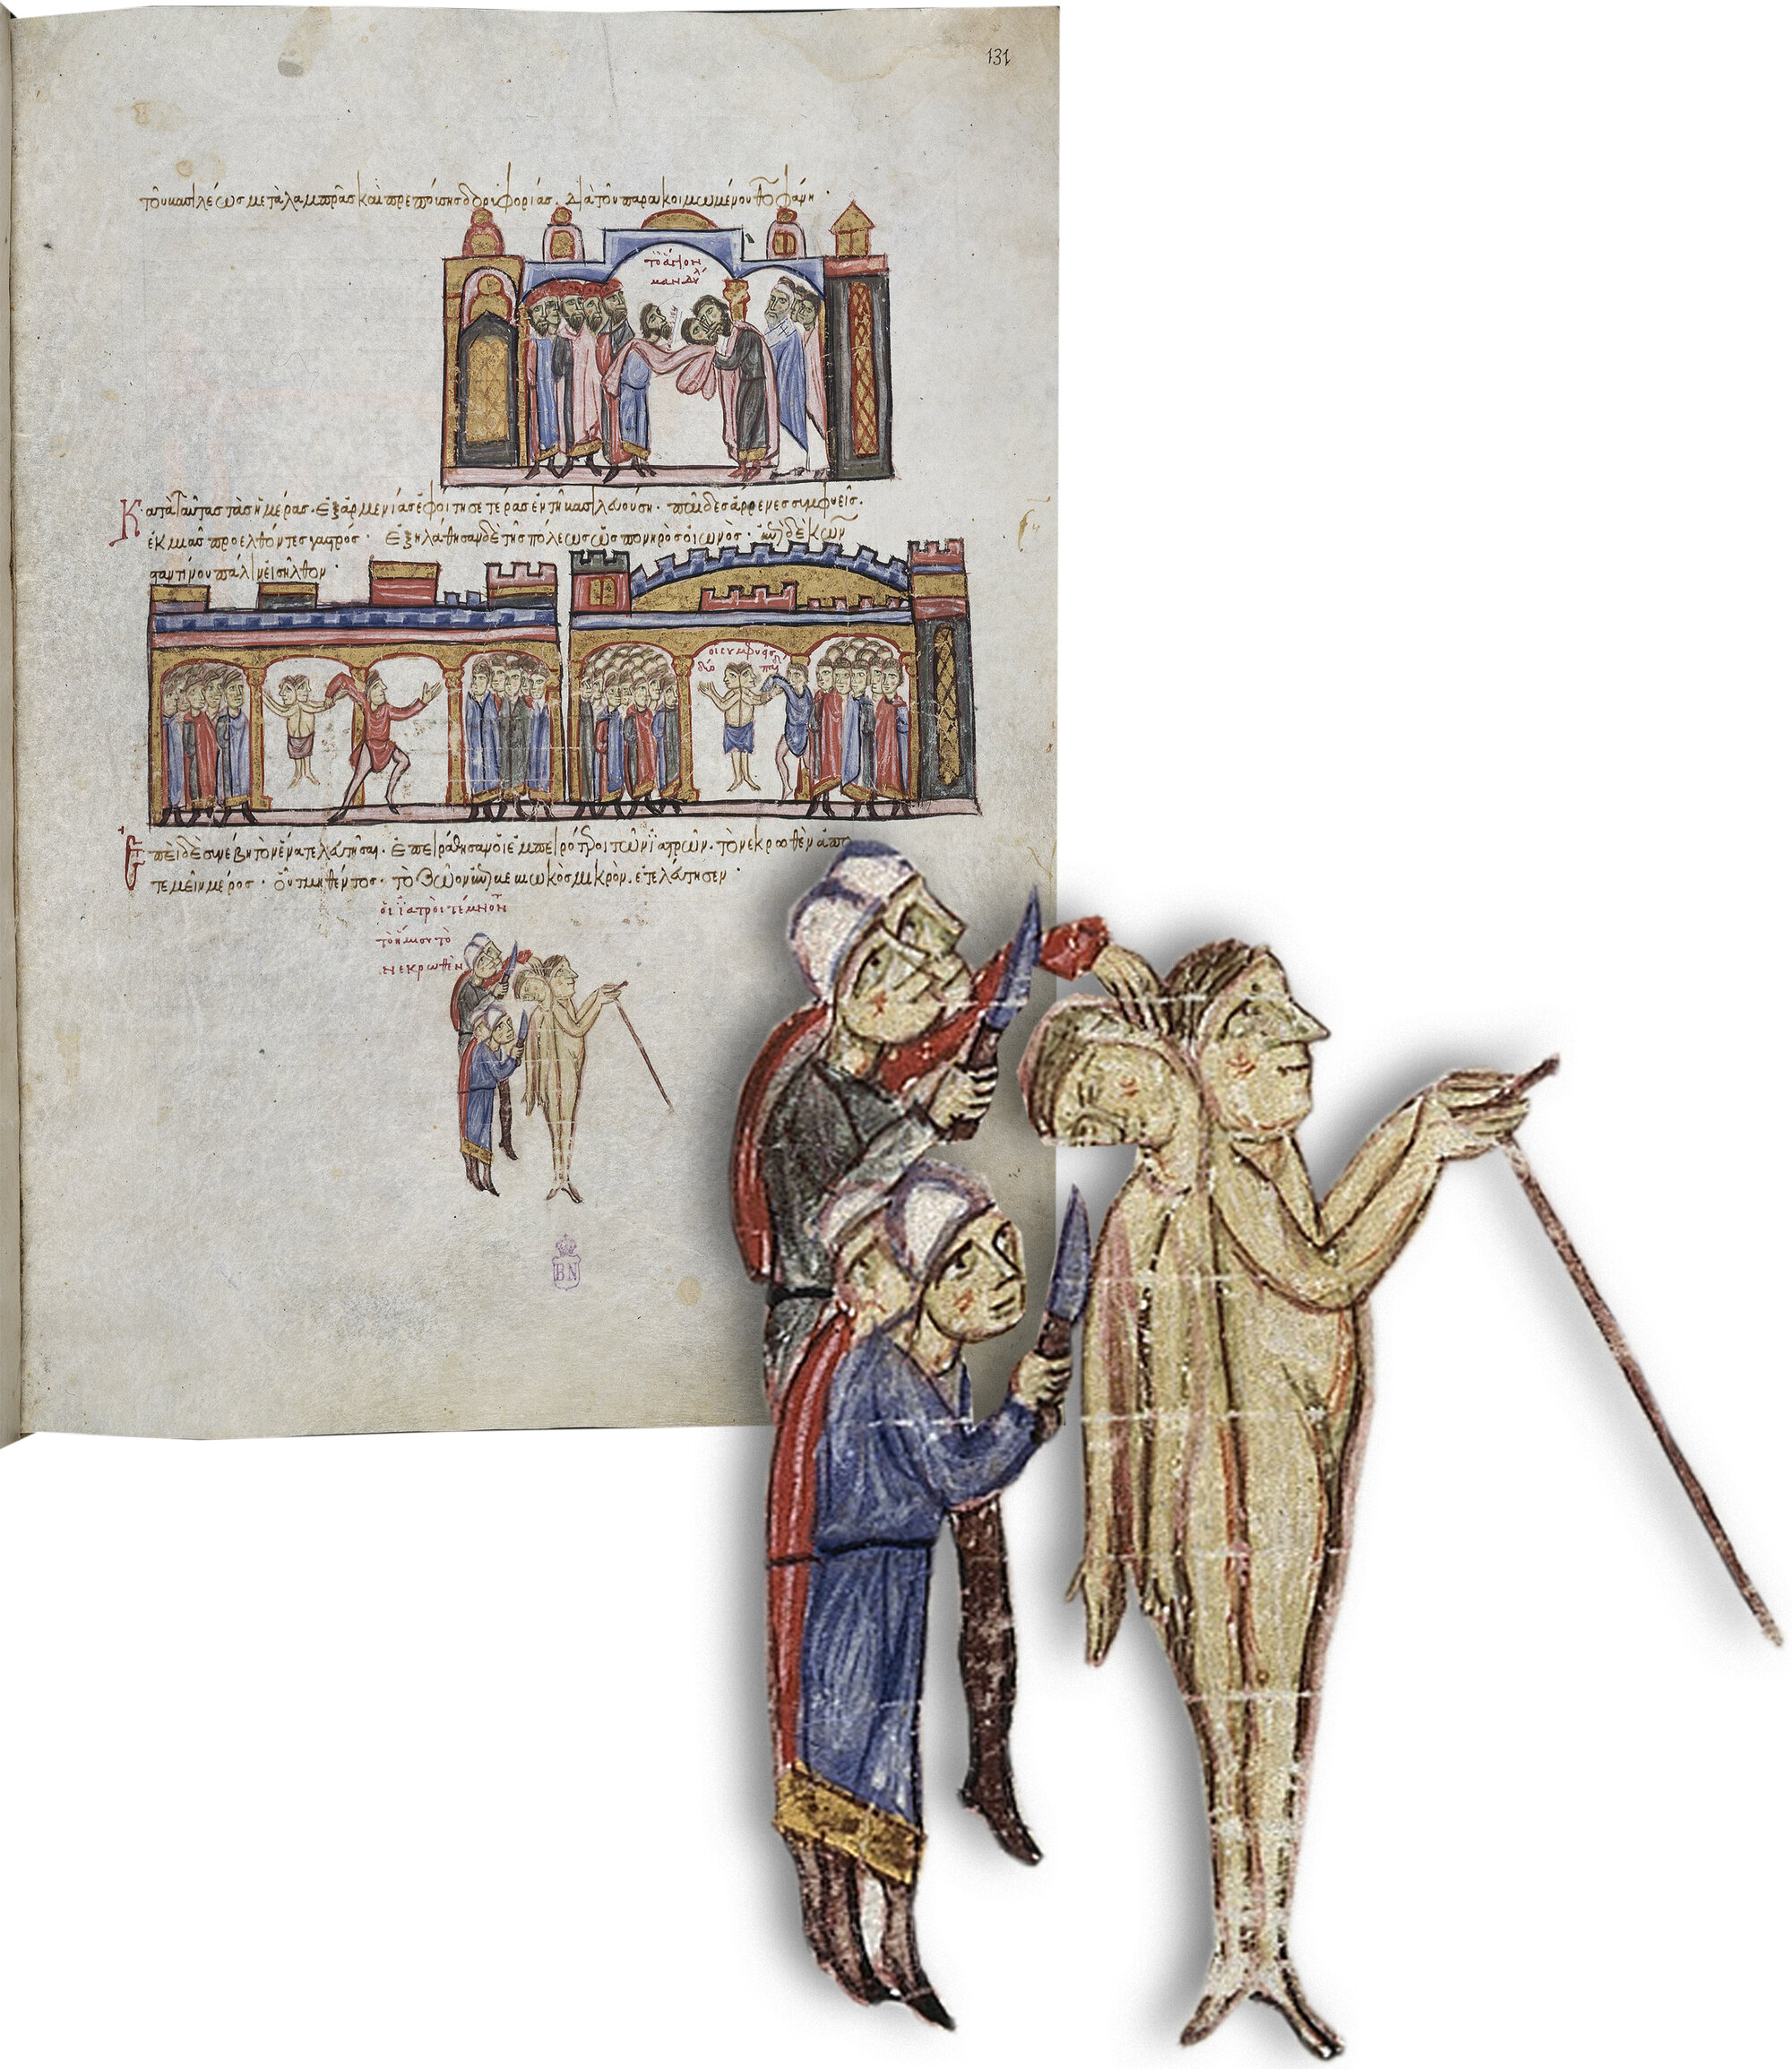 131
τοῦ βασιλέως μετὰ λαμπρᾶς καὶ πρεποίσης δορϊφορίας. Διὰ τοῦ παρακοιμωμένου Θεοφάνη ·
τὸ ἅγιον
μανδύ
Κατὰ ταύτας τὰς ἡμέρας. ἐξ ἀρμενίας ἐφοίτησε τέρας ἐν τῇ βασιλευούση. παῖδες ἄρρενες συμφυεῖς.
ἐκ μιᾶς προελθόντες γαστρός · ἐξηλάθησαν δὲ τῆς πόλεως ὡς πονηρὸς οἰωνός · δὲ κων
σταντίνου πάλιν εἰσῆλθον ·
οἱ συμφυεῖς
δύο
Ἐπεὶ δὲ συνέβη τὸν ἕνα τελευτῆσαι. ἐπειράθησαν οἱ ἐμπειρότεροι τῶν ἰατρῶν. τὸ νεκρωθὲν ἀπο
τεμεῖν μέρος · οὗ τμηθέντος · τὸ ζῶον μικρὸν. ἐτελεύτησεν ·
οἱ ἰατροὶ τέμνον
τὸ ἥμισυ τὸ
νεκρωθὲν
BN